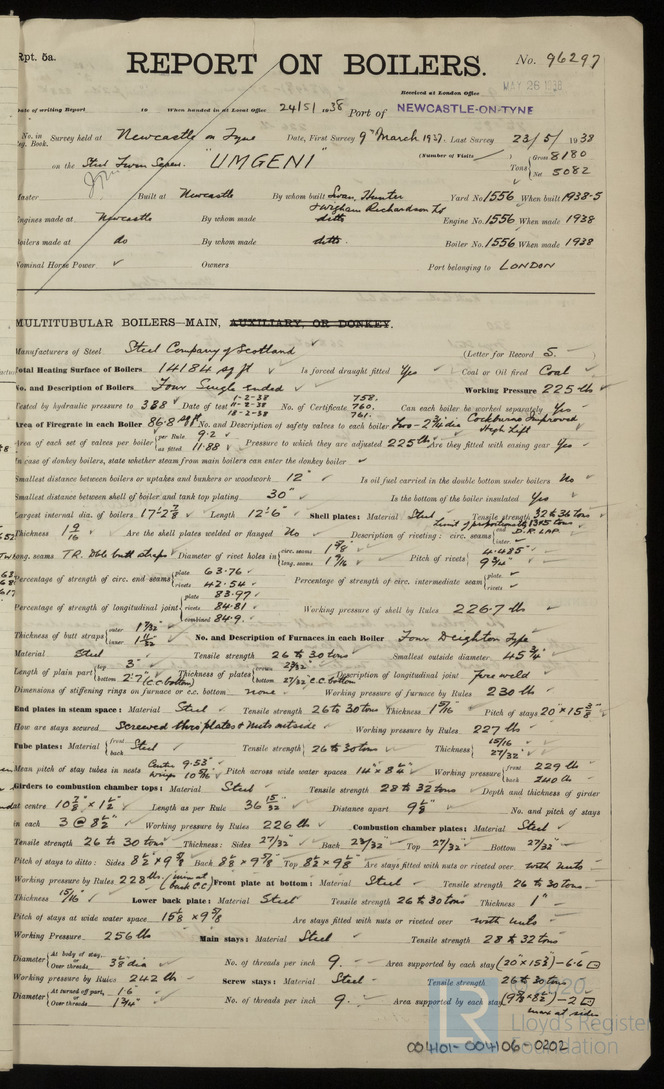 Rpt. 5a.
REPORT ON BOILERS.
No. 96297
Received at London Office
MAY 26 1938
Date of writing Report 19 When handed in at Local Office 24/5/1938 Port of NEWCASTLE-ON-TYNE
No. in Reg. Book. Survey held at Newcastle on Tyne Date, First Survey 9th March 1937. Last Survey 23/5/1938
on the Steel Twin Screw. "UMGENI" (Number of Visits ) Tons { Gross 8180 Net 5082
Master Built at Newcastle By whom built Swan, Hunter & Wigham Richardson Ltd Yard No. 1556 When built 1938-5
Engines made at Newcastle By whom made ditto Engine No. 1556 When made 1938
Boilers made at do By whom made ditto. Boiler No. 1556 When made 1938
Nominal Horse Power Owners Port belonging to LONDON
MULTITUBULAR BOILERS—MAIN, AUXILIARY, OR DONKEY.
Manufacturers of Steel Steel Company of Scotland (Letter for Record S.
Total Heating Surface of Boilers 14184 sq ft Is forced draught fitted Yes Coal or Oil fired Coal
No. and Description of Boilers Four Single ended Working Pressure 225 lbs
Tested by hydraulic pressure to 388 Date of test 1-2-38 11-2-38 18-2-38 No. of Certificate 758. 760. 761. Can each boiler be worked separately Yes
Area of Firegrate in each Boiler 86.8 sq ft No. and Description of safety valves to each boiler Two - 2 3/4 dia Cockburns Improved High Lift
Area of each set of valves per boiler { per Rule 9.2 as fitted 11.88 Pressure to which they are adjusted 225 lbs Are they fitted with easing gear Yes
In case of donkey boilers, state whether steam from main boilers can enter the donkey boiler
Smallest distance between boilers or uptakes and bunkers or woodwork 12" Is oil fuel carried in the double bottom under boilers No
Smallest distance between shell of boiler and tank top plating 30" Is the bottom of the boiler insulated Yes
Largest internal dia. of boilers 17'-2 7/8 Length 12'-6" Shell plates: Material Steel Tensile strength 32 to 36 tons
Thickness 1 9/16 Are the shell plates welded or flanged No Description of riveting: circ. seams { end D.R. LAP. inter.
Long. seams T.R. Dble butt straps Diameter of rivet holes in { circ. seams 1 5/8 long. seams 1 9/16 Pitch of rivets { 4.485" 9 3/4"
Percentage of strength of circ. end seams { plate 63.76 rivets 42.54 Percentage of strength of circ. intermediate seam { plate rivets
Percentage of strength of longitudinal joint { plate 83.97 rivets 84.81 combined 84.9. Working pressure of shell by Rules 226.7 lbs
Thickness of butt straps { outer 1 7/32 inner 1 11/32 No. and Description of Furnaces in each Boiler Four Deighton Type
Material Steel Tensile strength 26 to 30 tons Smallest outside diameter 45 3/4"
Length of plain part { top 3" bottom 2'-7" (C.C. bottom) Thickness of plates { crown 23/32 bottom 27/32 C.C. bottom Description of longitudinal joint fire weld
Dimensions of stiffening rings on furnace or c.c. bottom none Working pressure of furnace by Rules 230 lbs
End plates in steam space: Material Steel Tensile strength 26 to 30 tons Thickness 1 5/16 Pitch of stays 20" x 15 3/8"
How are stays secured Screwed thro' plates & nuts outside Working pressure by Rules 227 lbs
Tube plates: Material { front back Steel Tensile strength { 26 to 30 tons Thickness { 15/16 27/32
Mean pitch of stay tubes in nests Center 9.53" Wings 10 5/16 Pitch across wide water spaces 14" x 8 1/4" Working pressure { front 229 lbs back 240 lbs
Girders to combustion chamber tops: Material Steel Tensile strength 28 to 32 tons Depth and thickness of girder
at centre 10 7/8" x 1 1/2" Length as per Rule 36 15/32 Distance apart 9 1/8" No. and pitch of stays
in each 3 @ 8 1/2" Working pressure by Rules 226 lbs Combustion chamber plates: Material Steel
Tensile strength 26 to 30 tons Thickness: Sides 27/32" Back 23/32" Top 27/32" Bottom 27/32"
Pitch of stays to ditto: Sides 8 1/2" x 9 7/8 Back 8 1/2 x 9 5/8" Top 8 1/2 x 9 1/8 Are stays fitted with nuts or riveted over with nuts
Working pressure by Rules 228 lbs. (min at back C.C.) Front plate at bottom: Material Steel Tensile strength 26 to 30 tons
Thickness 15/16" Lower back plate: Material Steel Tensile strength 26 to 30 tons Thickness 1"
Pitch of stays at wide water space 15 1/8 x 9 5/8 Are stays fitted with nuts or riveted over with nuts
Working Pressure 256 lbs Main stays: Material Steel Tensile strength 28 to 32 tons
Diameter { At body of stay, or Over threads 3 1/2 dia No. of threads per inch 9. Area supported by each stay (20" x 15 3/8) - 6.6
Working pressure by Rules 242 lbs Screw stays: Material Steel Tensile strength 26 to 30 tons
Diameter { At turned off part, or Over threads 1.6" 1 3/4" No. of threads per inch 9. Area supported by each stay (9 7/8 x 8 1/2) - 2 max at sides
LR
Lloyd's Register
Foundation
004101-004106-0202